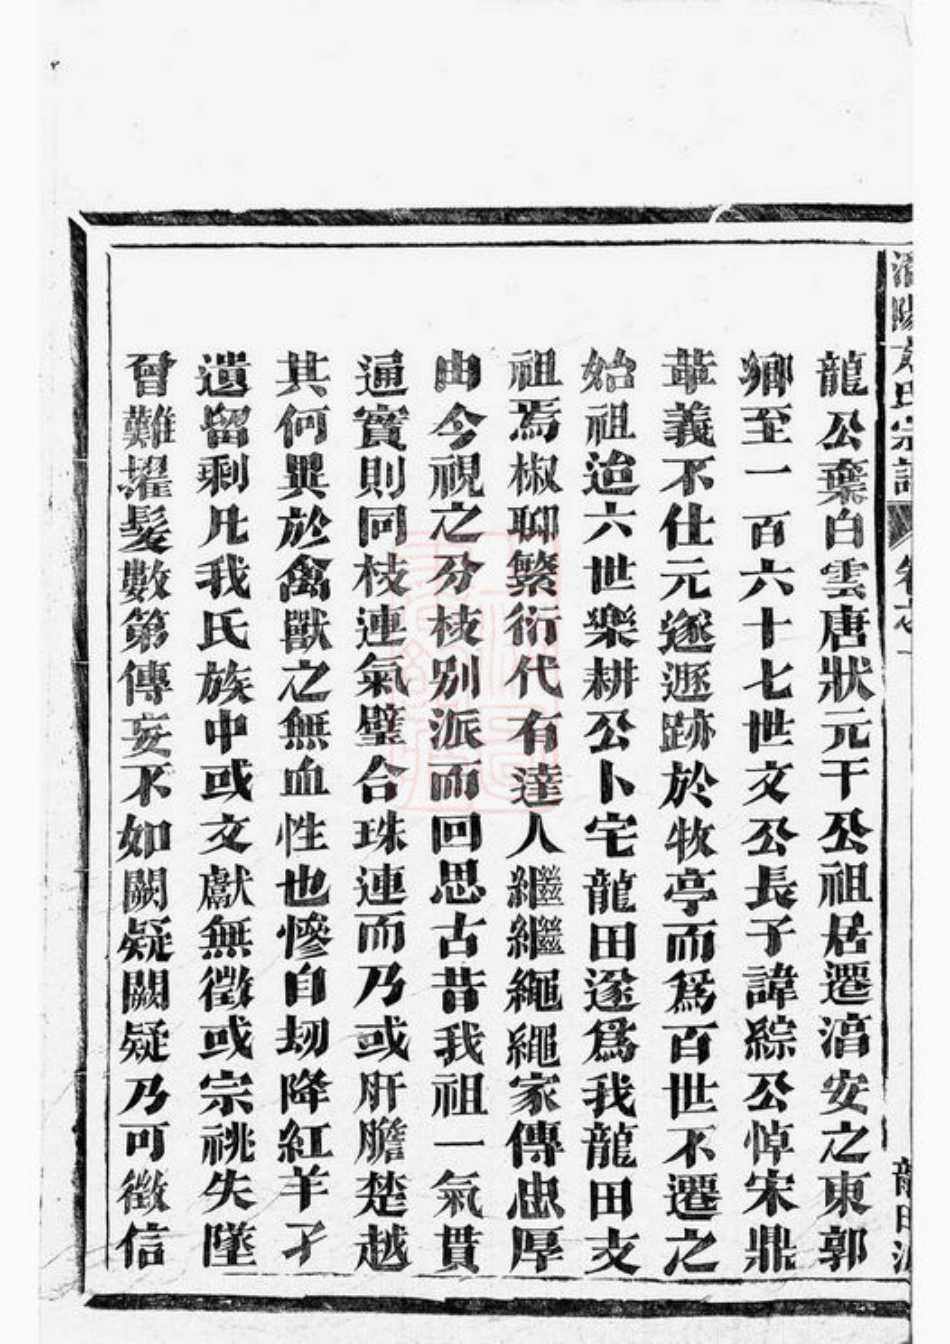 文氏宗譜 卷之一
龍公棄白雲唐狀元干公祖居遷滈安之東郭
鄉至一百六十七世文公長子諱綜公悼宋鼎
革義不仕元遂遯跡於牧亭而爲百世不遷之
始祖迨六世樂耕公卜宅龍田遂爲我龍田支
祖焉椒聊繁衍代有達人繼繼繩繩家傳忠厚
由今視之分枝别派而回思古昔我祖一氣貫
通實則同枝連氣璧合珠連而乃或肝膽楚越
其何異於禽獸之無血性也慘自刼降紅羊孑
遺留剩凡我氏族中或文獻無徵或宗祧失墜
曾難擢髮數第傳妄不如闕疑闕疑乃可徵信
龍田派